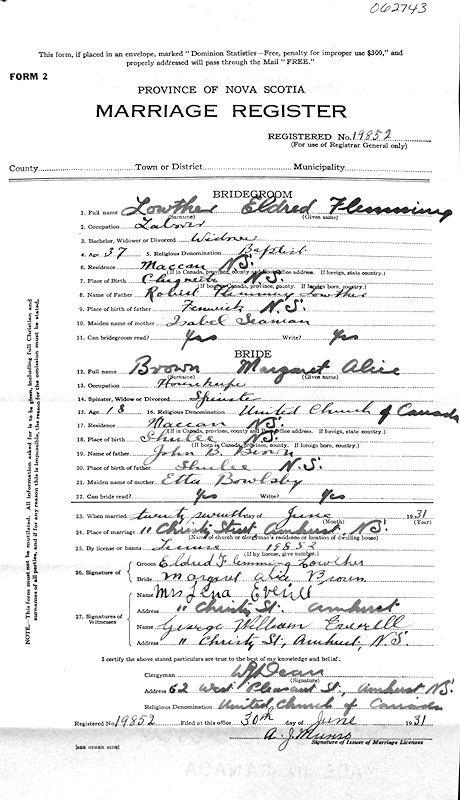 062743
This form, if placed in an envelope, marked "Dominion Statistics—Free, penalty for improper use $300," and
properly addressed will pass through the Mail "FREE."
FORM 2
PROVINCE OF NOVA SCOTIA
MARRIAGE REGISTER
REGISTERED No. 19852
(For use of Registrar General only)
County Town or District Municipality
BRIDEGROOM
1. Full name Lowther Eldred Flemming
(Surname) (Given name)
2. Occupation Laborer
3. Bachelor, Widower or Divorced Widower
4. Age 37 5. Religious Denomination Baptist
6. Residence Maccan N.S.
(If in Canada, province, county and Post Office address. If foreign, state country.)
7. Place of Birth N.S.
(If born in Canada, province, county. If foreign born, country.)
8. Name of Father Robert Flemming Lowther
9. Place of birth of father Fenwick N.S.
10. Maiden name of mother Isabel Seaman
11. Can bridegroom read? Yes Write? Yes
BRIDE
12. Full name Brown Margaret Alice
(Surname) (Given name)
13. Occupation Housekeeper
14. Spinster, Widow or Divorced Spinster
15. Age 18 16. Religious Denomination United Church of Canada
17. Residence Maccan N.S.
(If in Canada, province, county and Post Office address. If foreign, state country.)
18. Place of birth Shulee N.S.
(If born in Canada, province, county. If foreign born, country.)
19. Name of father John B. Brown
20. Place of birth of father Shulee N.S.
21. Maiden name of mother Etta Bowlsby
22. Can bride read? Yes Write? Yes
23. When married twenty seventh of June 1931
(Month) (Year)
24. Place of marriage 11 Christy Street Amherst N.S.
(Name of church or clergyman's residence or location of dwelling house)
25. By license or banns License 19852
(If by license, give number.)
26. Signature of
Groom Eldred Flemming Lowther
Bride Margret Alice Brown
27. Signatures of Witnesses
Name Mrs Lena Everill
Address 11 Christy St. Amherst
Name George William Everell
Address 11 Christy St, Amherst, N.S.
I certify the above stated particulars are true to the best of my knowledge and belief.
Clergyman Dean
(Signature)
Address 62 West Pleasant St., Amherst N.S.
Religious Denomination United Church of Canada
Registered No. 19852 Filed at this office 30th day of June 1931
A. J. Munro
Signature of Issuer of Marriage Licenses
(SEE OTHER SIDE)
NOTE.—This form must not be mutilated. All information asked for is to be given, including full Christian and
surnames of all parties, and if for any reason this is impossible, the reason for the omission must be stated.